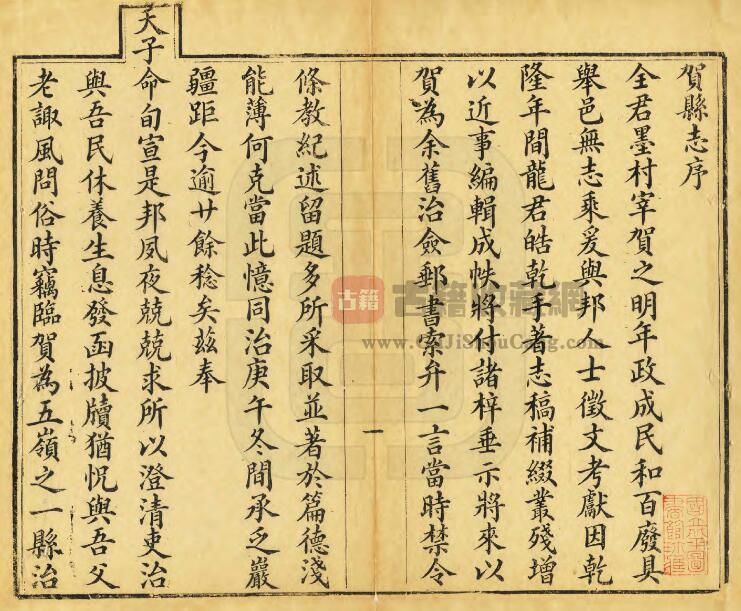 賀縣志序
全君墨村宰賀之明年政成民和百廢具
舉邑無志乘爰與邦人士徵文考獻因乾
隆年間龍君皓乾手著志稿補綴叢殘增
以近事編輯成帙將付諸梓垂示將來以
賀為余舊治僉郵書索弁一言當時禁令
條教紀述留題多所采取並著於篇德淺
能薄何克當此憶同治庚午冬間承乏巖
疆距今逾廿餘稔矣茲奉
天子命旬宣是邦夙夜兢兢求所以澄清吏治
與吾民休養生息發函披牘猶怳與吾父
老諏風問俗時竊臨賀為五嶺之一縣治
一
古籍
古籍收藏網
www.GuJiShouCang.com